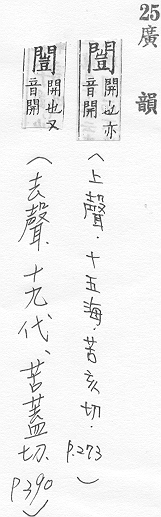 25廣韻
闓開也亦音開
(上聲.十五海.苦亥切.P.273)
闓開也又音開
(去聲.十九代、苦蓋切.P390)